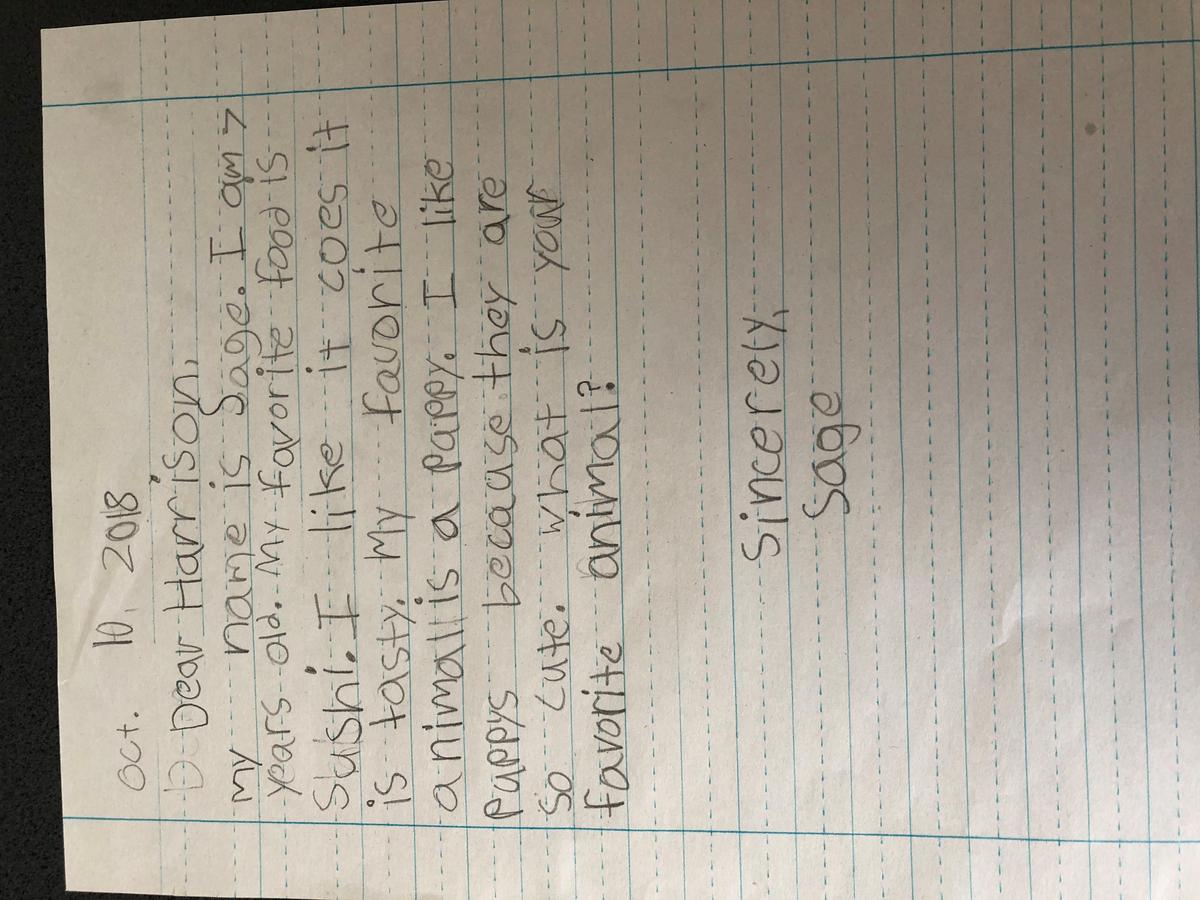 Oct. 10, 2018
Dear Harrison,
My name is Sage. I am 7
years old. My favorite food is
Sushi. I like it coes it
is tasty. My favorite
animal is a puppy. I like
puppys because they are
so cute. what is your
favorite animal?
Sincerely,
Sage